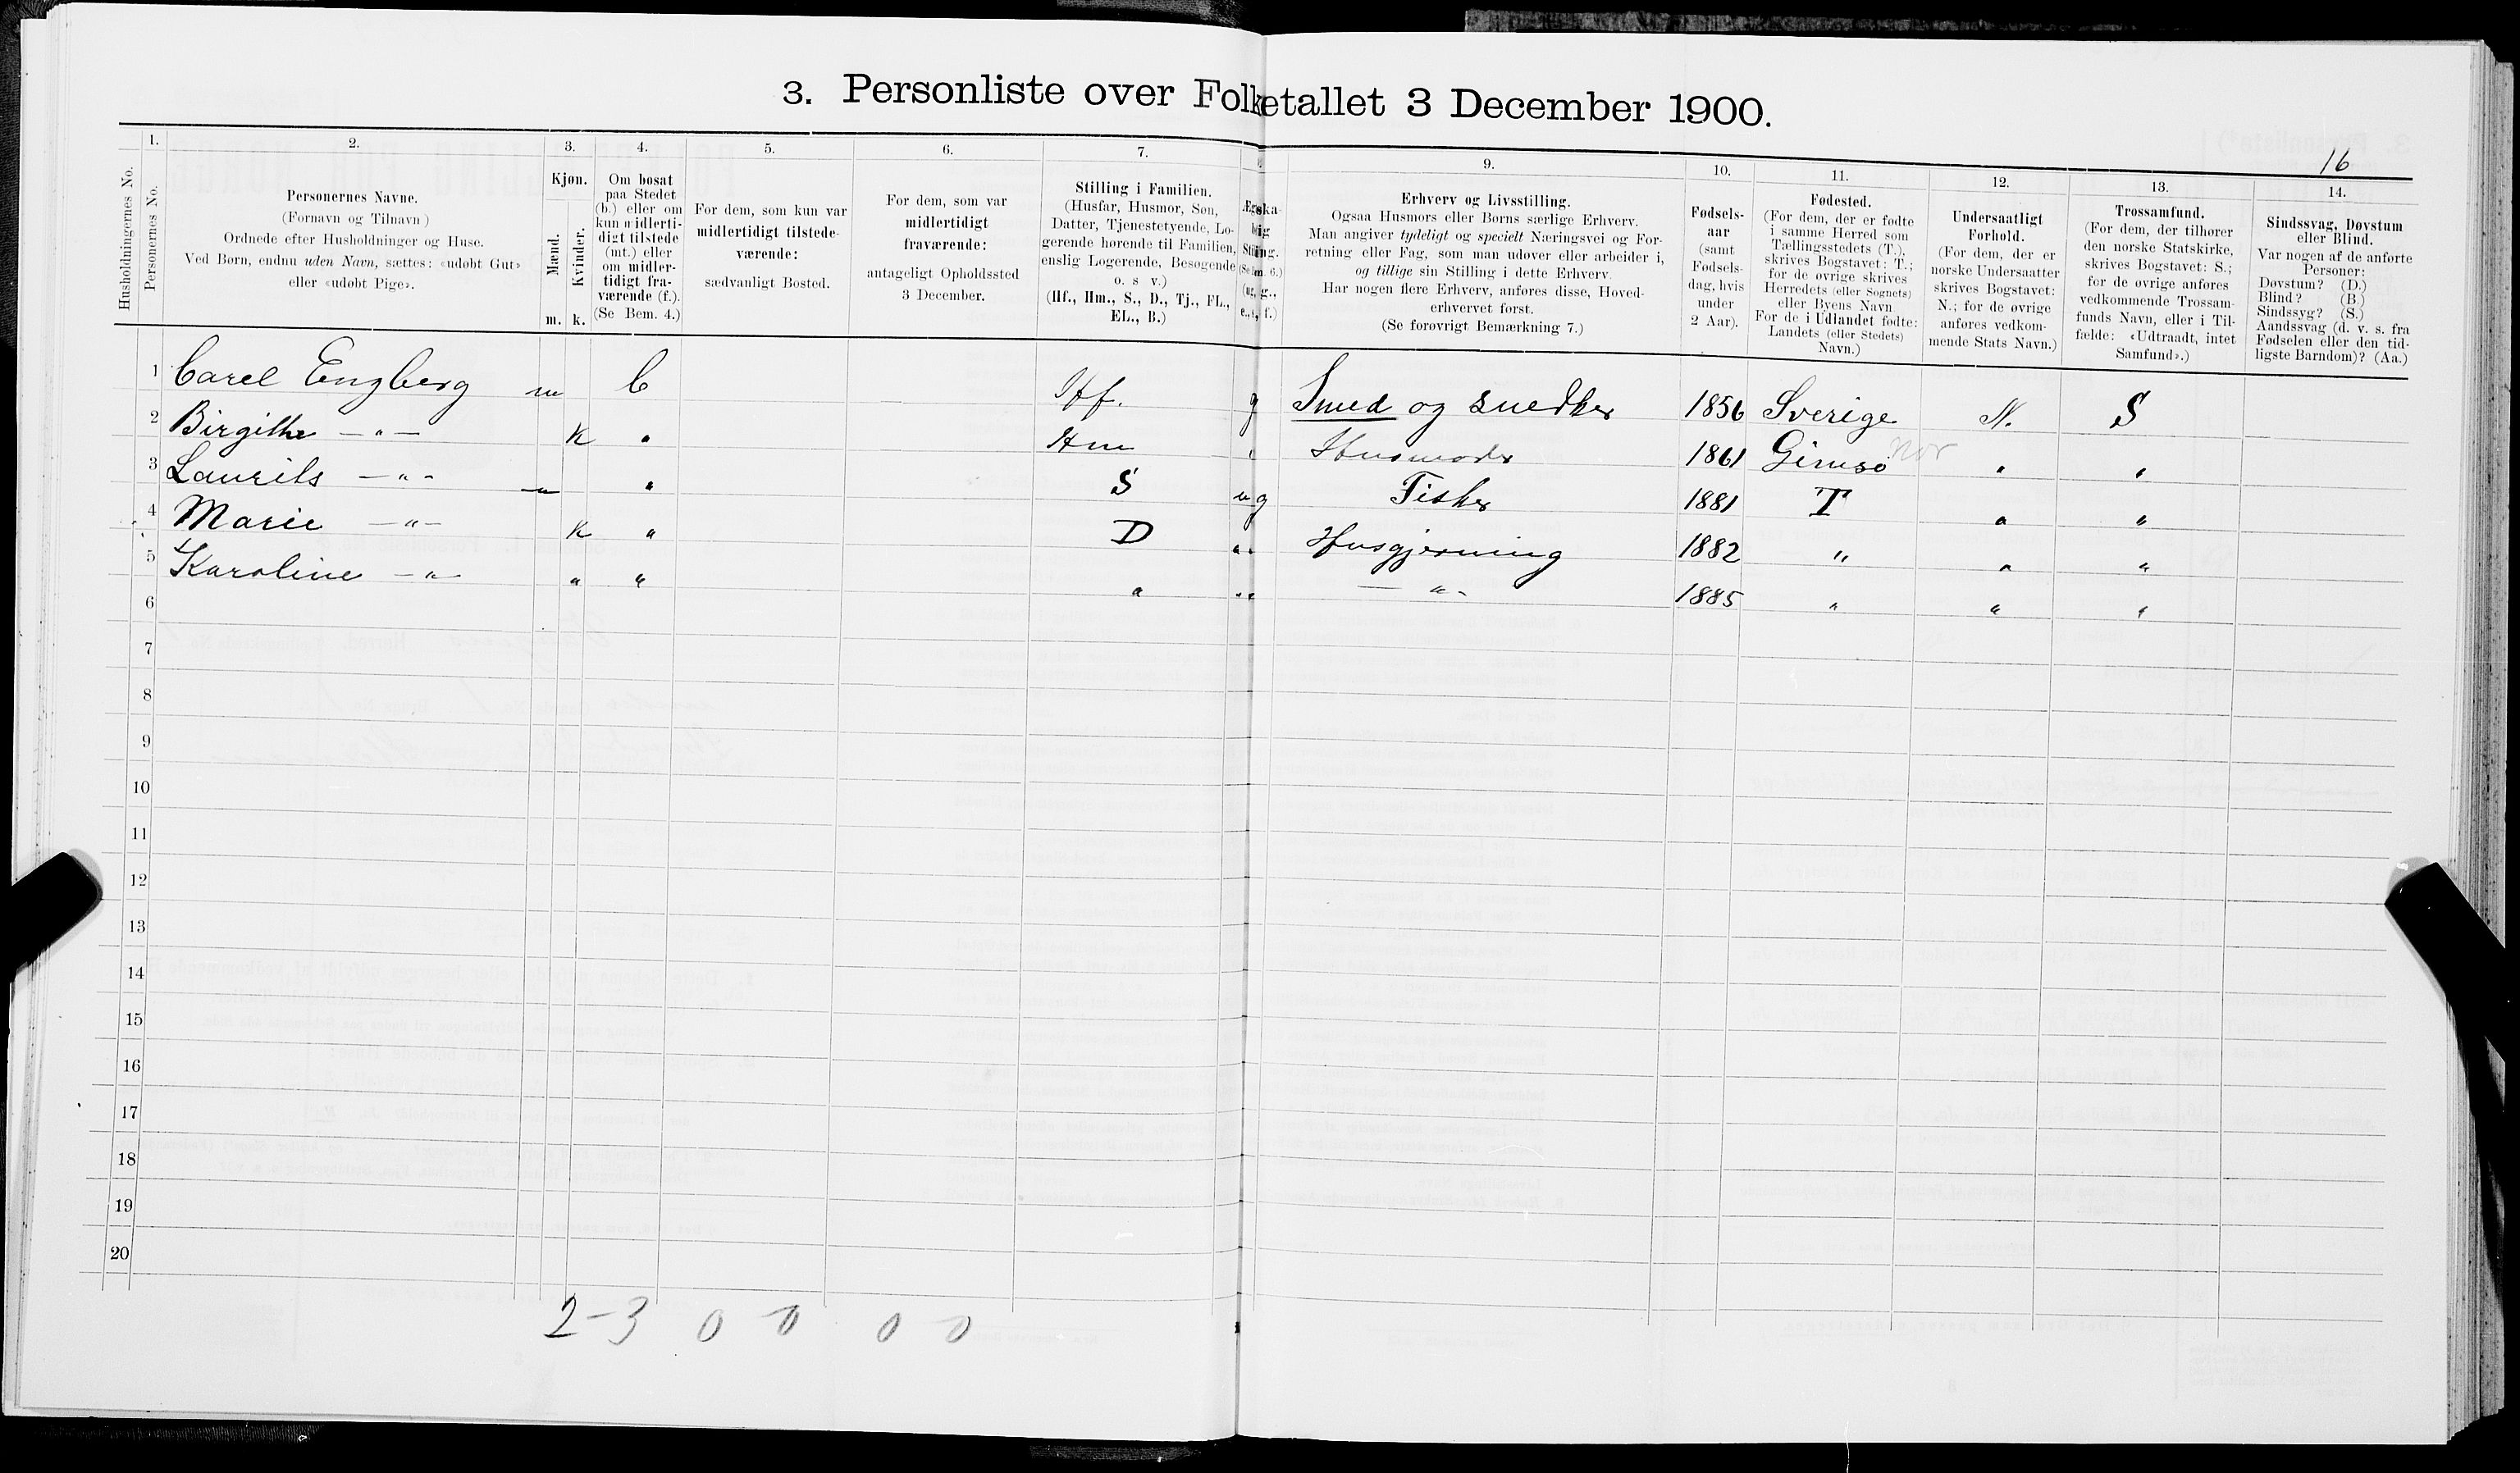 3. Personliste over Folketallet 3 December 1900.
16
Husholdningernes No.
1.
Personernes No.
2.
Personernes Navne.
(Fornavn og Tilnavn)
Ordnede efter Husholdninger og Huse.
Ved Børn, endnu uden Navn, sættes: «udøbt Gut»
eller «udøbt Pige».
3.
Kjøn.
Mænd.
Kvinder.
m. k.
4.
Om bosat
paa Stedet
(b.) eller om
kun midlerti-
digt tilstede
(mt.) eller
om midler-
tidigt fra-
værende (f.).
(Se Bem. 4.)
5.
For dem, som kun var
midlertidigt tilstede-
værende:
sædvanligt Bosted.
6.
For dem, som var
midlertidigt
fraværende:
antageligt Opholdssted
3 December.
7.
Stilling i Familien.
(Husfar, Husmor, Søn,
Datter, Tjenestetyende, Lo-
gerende hørende til Familien,
enslig Logerende, Besøgende
o. s v.)
(Hf., Hm., S., D., Tj., FL.,
EL., B.)
9.
Erhverv og Livsstilling.
Ogsaa Husmors eller Børns særlige Erhverv.
Man angiver tydeligt og specielt Næringsvei og For-
retning eller Fag, som man udøver eller arbeider i,
og tillige sin Stilling i dette Erhverv.
Har nogen flere Erhverv, anføres disse, Hoved-
erhvervet først.
(Se forøvrigt Bemærkning 7.)
10.
Fødsels-
aar
(samt
Fødsels-
dag, hvis
under
2 Aar).
11.
Fødested.
(For dem, der er fødte
i samme Herred som
Tællingsstedets (T.),
skrives Bogstavet: T.;
for de øvrige skrives
Herredets (eller Sognets)
eller Byens Navn
For de i Udlandet fødte:
Landets (eller Stedets)
Navn.)
12.
Undersaatligt
Forhold.
(For dem, der er
norske Undersaatter
skrives Bogstavet:
N.; for de øvrige
anføres vedkom-
mende Stats Navn.)
13.
Trossamfund.
(For dem, der tilhører
den norske Statskirke,
skrives Bogstavet: S.;
for de øvrige anføres
vedkommende Trossam-
funds Navn, eller i Til-
fælde: «Udtraadt, intet
Samfund».)
14.
Sindssvag, Døvstum
eller Blind.
Var nogen af de anførte
Personer:
Døvstum? (D.)
Blind? (B.)
Sindssyg? (S.)
Aandssvag (d. v. s. fra
Fødselen eller den tid-
ligste Barndom)? (Aa.)
1 Carel Engberg m b Hf. g Smed og snedker 1856 Sverige N. S
2 Birgithe — " — K " Hm " Husmoder 1861 Gimsø Nor " "
3 Laurits — " - m " S ug Fisker 1881 T " "
4 Marie — " — K " D " " Husgjerning 1882 " " "
5 Karoline — " - " " " " " — " - 1885 " " "
6
7
8
9
10
11
12
13
14
15
16
17
18
19
20
2-3 0 0 0 0